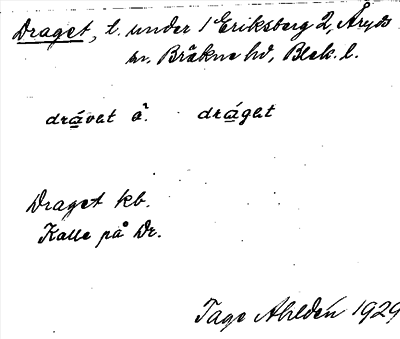 Draget, t. under 1 Eriksberg 2, Åryds
sn. Bräkne hd, Blek. l.
drávat ä. dráget
Draget kb.
Kalle på Dr.
Tage Ahldén 1929